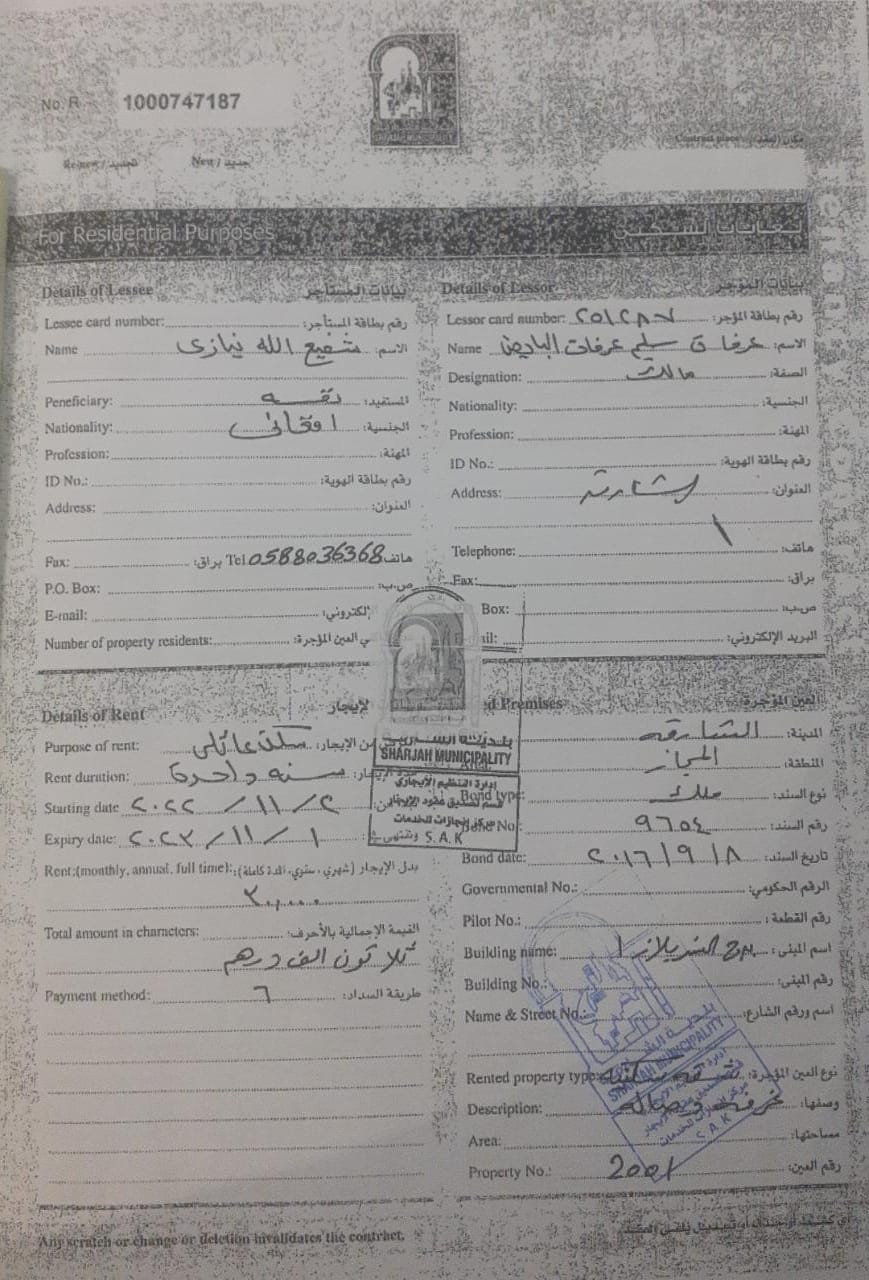 No. R 1000747187
SHARJAH MUNICIPALITY
Contract place مكان العقد
Renew / تجديد New / جديد
For Residential Purposes
Details of Lessee بيانات المستأجر
Lessee card number: رقم بطاقة المستأجر:
Name شفيع الله نيازى الاسم:
Peneficiary: نفسه المستفيد:
Nationality: افغانى الجنسية:
Profession: المهنة:
ID No.: رقم بطاقة الهوية:
Address: العنوان:
Fax: براق: Tel 0588036368 هاتف
P.O. Box: ص.ب:
E-mail: إلكتروني:
Number of property residents: ي العين المؤجرة:
Details of Lessor بيانات المؤجر
Lessor card number: رقم بطاقة المؤجر:
Name عرفات سالم عرفات الاسم:
Designation: مالك الصفة:
Nationality: الجنسية:
Profession: المهنة:
ID No.: رقم بطاقة الهوية:
Address: الشارقة العنوان:
Telephone: هاتف:
Fax: براق:
Box: ص.ب:
ail: البريد الإلكتروني:
Details of Rent لإيجار
Purpose of rent: سكن عائلى من الإيجار:
Rent duration: سنه واحدة الإيجار:
Starting date ٢٠٢٢/١١/٢
Expiry date: ٢٠٢٣/١١/١ وتنتهي
Rent:(monthly, annual, full time): بدل الإيجار (شهري، سنوي، المدة كاملة):
٣٠٠٠٠
Total amount in characters: القيمة الإجمالية بالأحرف:
ثلاثون الف درهم
Payment method: ٦ طريقة السداد:
بلدية الشارقة
SHARJAH MUNICIPALITY
إدارة التنظيم الإيجاري
قسم تصديق عقود الإيجار
مركز إنجازات للخدمات
S.A.K
ed Premises العين المؤجرة
الشارقه المدينة:
المجاز المنطقة:
Bond type: ملك نوع السند:
Bond No ٩٦٥٤ رقم السند:
Bond date: ٢٠١٦/٩/٨ تاريخ السند:
Governmental No.: الرقم الحكومي:
Pilot No.: رقم القطعة:
Building name: برج اسم المبنى:
Building No.: رقم المبنى:
Name & Street No.: اسم ورقم الشارع:
Rented property type: شقه سكنيه نوع العين المؤجرة:
Description: غرفه وصاله وصفها:
Area: مساحتها:
Property No.: 2001 رقم العين:
بلدية الشارقة
SHARJAH MUNICIPALITY
S.A.K
Any scratch or change or deletion invalidates the contract.